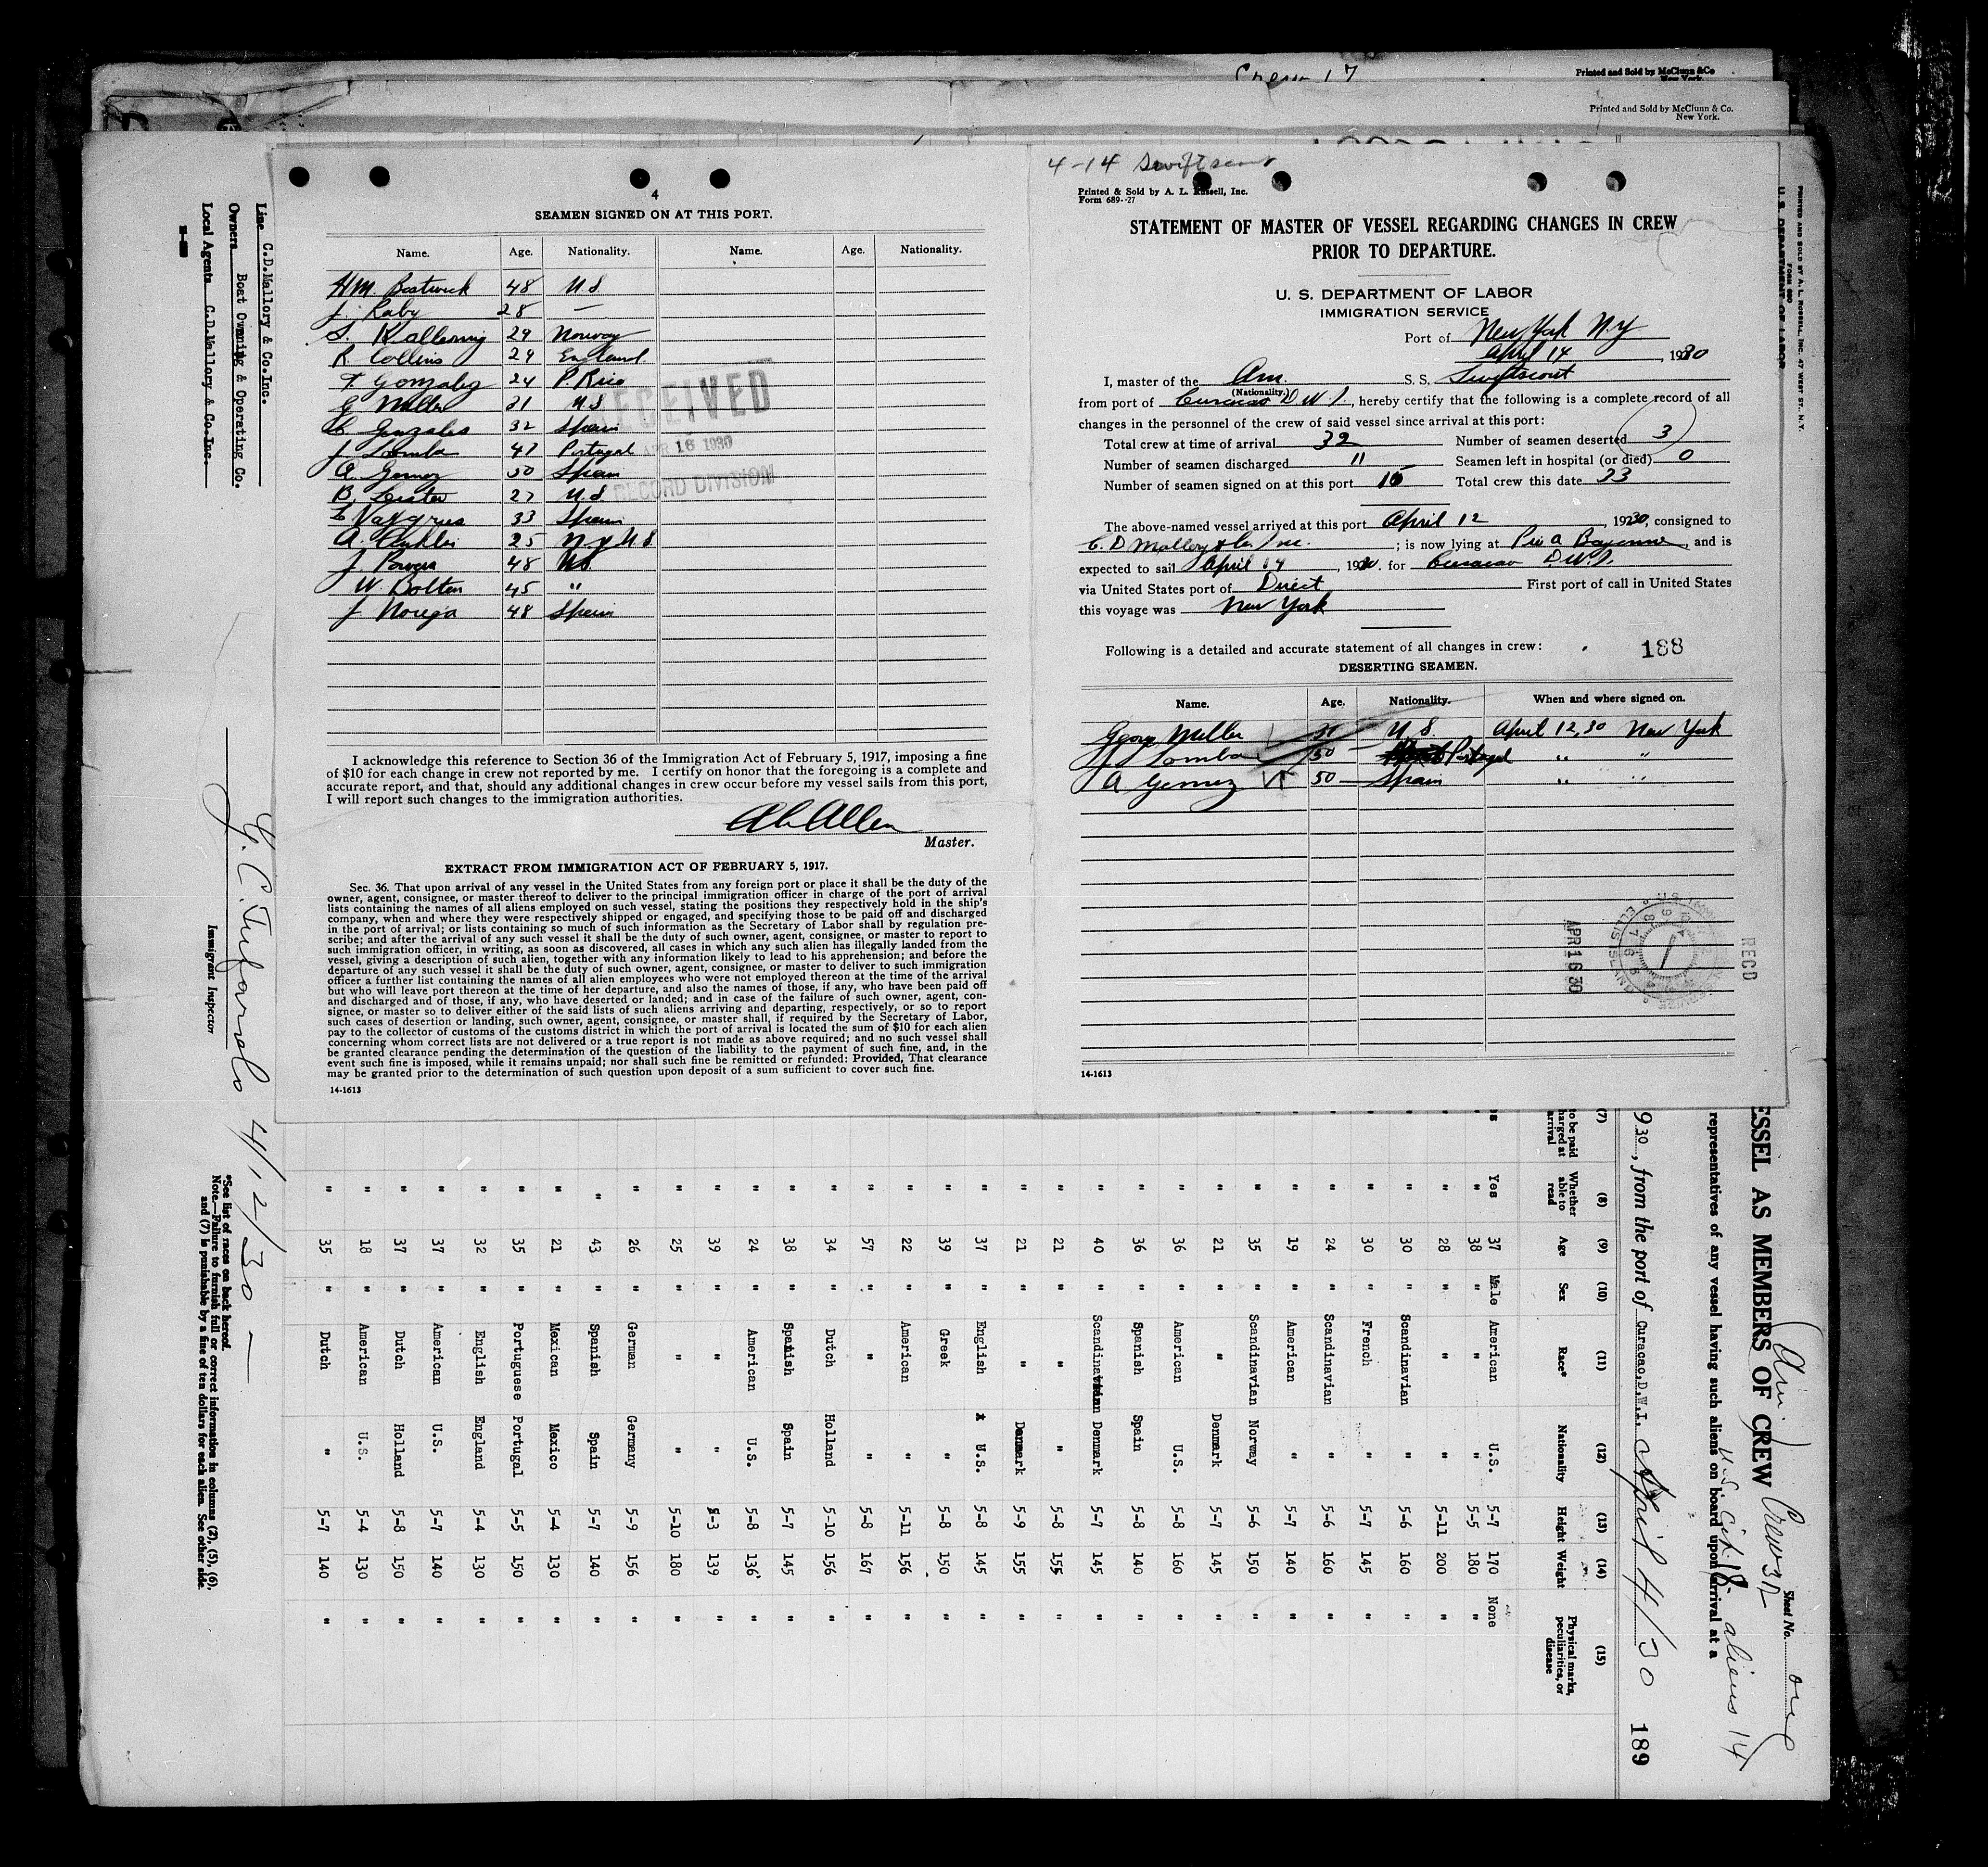 Printed and Sold by McClunn & Co
New York.
Printed and Sold by McClunn & Co.
New York.
4
SEAMEN SIGNED ON AT THIS PORT.
Name. Age. Nationality. Name. Age. Nationality.
H.M. Bostwick 48 U S
J. Raby 28 —
S. 29 Norway
R Collins 29 England.
F. Gonzalez 24 P. Rico
G Miller 31 U S
C Gonzales 32 Spain
J Lomba 47 Portugal
A. Gomez 50 Spain
B. Lester 27 U.S
33 Spain
A. 25 N Y U S
J. Powers 48 U.S.
W. Bolten 45 "
J Noriega 48 Spain
RECEIVED
APR 16 1930
RECORD DIVISION
I acknowledge this reference to Section 36 of the Immigration Act of February 5, 1917, imposing a fine
of $10 for each change in crew not reported by me. I certify on honor that the foregoing is a complete and
accurate report, and that, should any additional changes in crew occur before my vessel sails from this port,
I will report such changes to the immigration authorities.
Allen
Master.
EXTRACT FROM IMMIGRATION ACT OF FEBRUARY 5, 1917.
Sec. 36. That upon arrival of any vessel in the United States from any foreign port or place it shall be the duty of the
owner, agent, consignee, or master thereof to deliver to the principal immigration officer in charge of the port of arrival
lists containing the names of all aliens employed on such vessel, stating the positions they respectively hold in the ship's
company, when and where they were respectively shipped or engaged, and specifying those to be paid off and discharged
in the port of arrival; or lists containing so much of such information as the Secretary of Labor shall by regulation pre-
scribe; and after the arrival of any such vessel it shall be the duty of such owner, agent, consignee, or master to report to
such immigration officer, in writing, as soon as discovered, all cases in which any such alien has illegally landed from the
vessel, giving a description of such alien, together with any information likely to lead to his apprehension; and before the
departure of any such vessel it shall be the duty of such owner, agent, consignee, or master to deliver to such immigration
officer a further list containing the names of all alien employees who were not employed thereon at the time of the arrival
but who will leave port thereon at the time of her departure, and also the names of those, if any, who have been paid off
and discharged and of those, if any, who have deserted or landed; and in case of the failure of such owner, agent, con-
signee, or master so to deliver either of the said lists of such aliens arriving and departing, respectively, or so to report
such cases of desertion or landing, such owner, agent, consignee, or master shall, if required by the Secretary of Labor,
pay to the collector of customs of the customs district in which the port of arrival is located the sum of $10 for each alien
concerning whom correct lists are not delivered or a true report is not made as above required; and no such vessel shall
be granted clearance pending the determination of the question of the liability to the payment of such fine, and, in the
event such fine is imposed, while it remains unpaid; nor shall such fine be remitted or refunded: Provided, That clearance
may be granted prior to the determination of such question upon deposit of a sum sufficient to cover such fine.
14-1613
4-14 Swiftscout
Printed & Sold by A. L. Russell, Inc.
Form 689-27
STATEMENT OF MASTER OF VESSEL REGARDING CHANGES IN CREW
PRIOR TO DEPARTURE.
U. S. DEPARTMENT OF LABOR
IMMIGRATION SERVICE
Port of New York N.Y
April 14, 1930
I, master of the Am. S. S. Swiftscout
(Nationality.)
from port of Curacao D W I., hereby certify that the following is a complete record of all
changes in the personnel of the crew of said vessel since arrival at this port:
Total crew at time of arrival 32 Number of seamen deserted 3
Number of seamen discharged 11 Seamen left in hospital (or died) 0
Number of seamen signed on at this port 15 Total crew this date 33
The above-named vessel arrived at this port April 12, 1930, consigned to
C. D Mallory & Co Inc.; is now lying at Pier A Bayonne, and is
expected to sail April 14, 1930. for Curacao D.W.I.
via United States port of Direct First port of call in United States
this voyage was New York
Following is a detailed and accurate statement of all changes in crew:
188
DESERTING SEAMEN.
Name. Age. Nationality. When and where signed on.
George Miller 31 U S. April 12, 30 New York
J Lomba 50 Portugal " "
A Gomez 50 Spain " "
APR 16 30
RECD
14-1613
PRINTED AND SOLD BY A. L. RUSSELL, INC. 47 WEST ST., N.Y.
FORM 680
U. S. DEPARTMENT OF LABOR
Sheet No. one
(Am.) Crew 32
ESSEL AS MEMBERS OF CREW
U.S. Cit. 18 - aliens 14
representatives of any vessel having such aliens on board upon arrival at a
9 30, from the port of Curacao,D.W.I. April 4/30
189
(7) (8) (9) (10) (11) (12) (13) (14) (15)
to be paid
harged at
arrival
Whether
able to
read
Age Sex Race* Nationality Height Weight
Physical marks,
peculiarities, or
disease
Yes 37 Male American U.S. 5-7 170 None
" 38 " " " 5-5 180 "
" 28 " " " 5-11 200 "
" 30 " Scandinavian " 5-6 160 "
" 30 " French " 5-7 145 "
" 24 " Scandinavian " 5-6 160 "
" 19 " American " 5-7 140 "
" 35 " Scandinavian Norway 5-6 150 "
" 21 " " Denmark 5-7 145 "
" 36 " American U.S. 5-8 160 "
" 36 " Spanish Spain 5-8 140 "
" 40 " Scandinavian Denmark 5-7 145 "
" 21 " " " 5-8 155 "
" 21 " " Denmark 5-9 155 "
" 37 " English U.S. 5-8 145 "
" 39 " Greek " 5-8 150 "
" 22 " American " 5-11 156 "
" 57 " " " 5-8 167 "
" 34 " Dutch Holland 5-10 156 "
" 38 " Spanish Spain 5-7 145 "
" 24 " American U.S. 5-8 136 "
" 39 " " " 5-3 139 "
" 25 " " " 5-10 180 "
" 26 " German Germany 5-9 156 "
" 43 " Spanish Spain 5-7 140 "
" 21 " Mexican Mexico 5-4 130 "
" 35 " Portuguese Portugal 5-5 150 "
" 32 " English England 5-4 130 "
" 37 " American U.S. 5-7 140 "
" 37 " Dutch Holland 5-8 150 "
" 18 " American U.S. 5-4 130 "
" 35 " Dutch " 5-7 140 "
Line C.D.Mallory & Co.Inc.
Owners Boat Owning & Operating Co.
Local Agents C.D.Mallory & Co.Inc.
4/12/30 —
Immigrant Inspector
*See list of races on back hereof.
Note.—Failure to furnish full or correct information in columns (2), (5), (6),
and (7) is punishable by a fine of ten dollars for each alien. See other side.